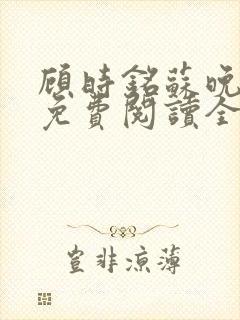 顧時銘蘇晚
免費閱讀全
豈非涼薄